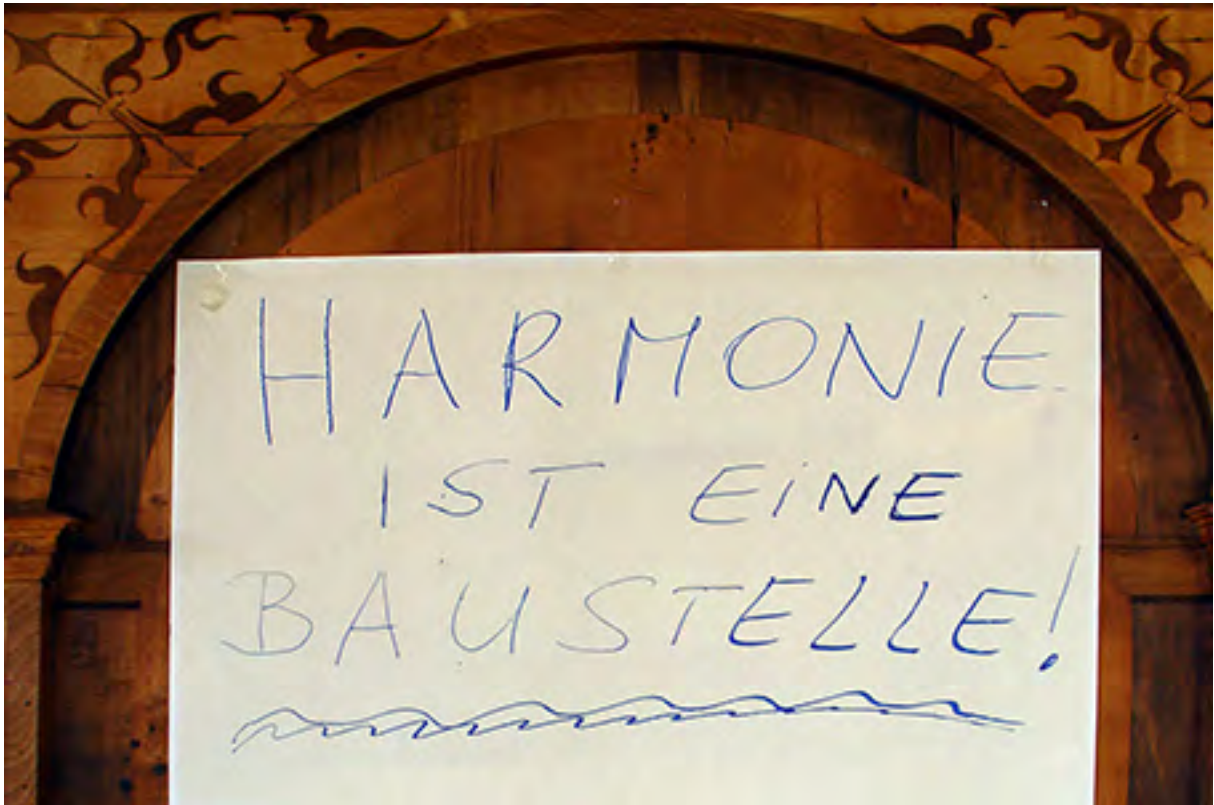 HARMONIE
IST EiNE
BAUSTELLE!